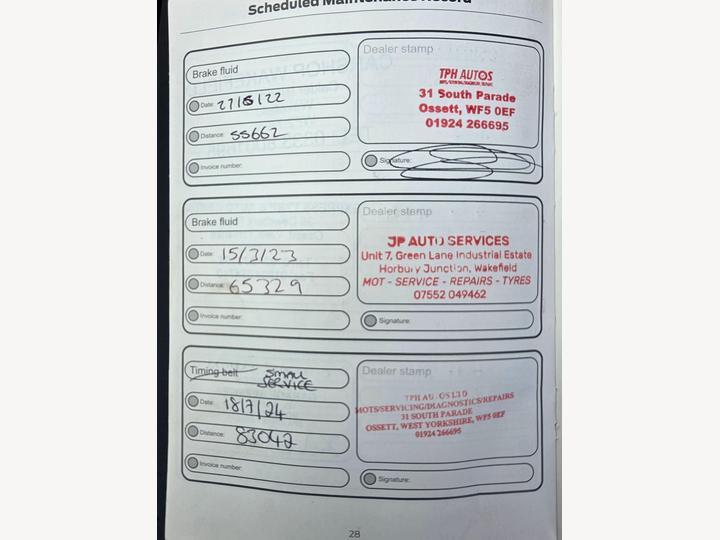 Scheduled Maintenance Record
Brake fluid
Date: 27/6/22
Distance: 55662
Invoice number:
Dealer stamp
TPH AUTOS
31 South Parade
Ossett, WF5 0EF
01924 266695
Signature:
Brake fluid
Date: 15/3/23
Distance: 65329
Invoice number:
Dealer stamp
JP AUTO SERVICES
Unit 7, Green Lane Industrial Estate
Horbury Junction, Wakefield
MOT - SERVICE - REPAIRS - TYRES
07552 049462
Signature:
Timing belt SMALL SERVICE
Date: 18/7/24
Distance: 83042
Invoice number:
Dealer stamp
TPH AUTOS LTD
MOTS/SERVICING/DIAGNOSTICS/REPAIRS
31 SOUTH PARADE
OSSETT, WEST YORKSHIRE, WF5 0EF
01924 266695
Signature:
28